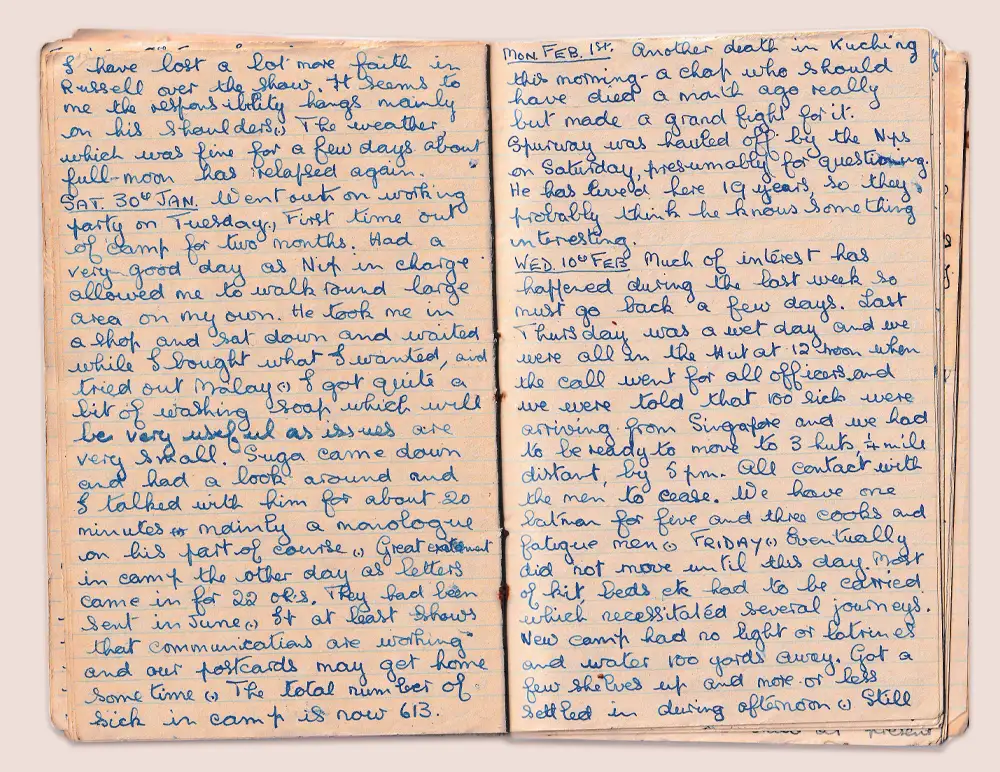 I have lost a lot more faith in
Russell over the show. It seems to
me the responsibility hangs mainly
on his shoulders. The weather,
which was fine for a few days about
full-moon has relapsed again.
SAT. 30th JAN. Went out on working
party on Tuesday. First time out
of camp for two months. Had a
very good day as Nip in charge
allowed me to walk round large
area on my own. He took me in
a shop and sat down and waited
while I bought what I wanted, and
tried out Malay. I got quite a
bit of washing soap which will
be very useful as issues are
very small. Suga came down
and had a look around and
I talked with him for about 20
minutes - mainly a monologue
on his part of course. Great excitement
in camp the other day as letters
came in for 22 o.ks. They had been
sent in June. It at least shows
that communications are working
and our postcards may get home
some time. The total number of
sick in camp is now 613.
MON. FEB. 1st. Another death in Kuching
this morning - a chap who should
have died a month ago really
but made a grand fight for it.
Spurway was hauled off by the Nips
on Saturday, presumably for questioning.
He has lived here 19 years, so they
probably think he knows something
interesting.
WED. 10th FEB Much of interest has
happened during the last week so
must go back a few days. Last
Thursday was a wet day and we
were all in the hut at 12 noon when
the call went for all officers and
we were told that 100 sick were
arriving from Singapore and we had
to be ready to move to 3 huts, ¼ mile
distant, by 5 pm. All contact with
the men to cease. We have one
batman for five and three cooks and
fatigue men. FRIDAY. Eventually
did not move until this day. Most
of kit beds etc had to be carried
which necessitated several journeys.
New camp had no light or latrines
and water 100 yards away. Got a
few shelves up and more or less
settled in during afternoon. Still
present